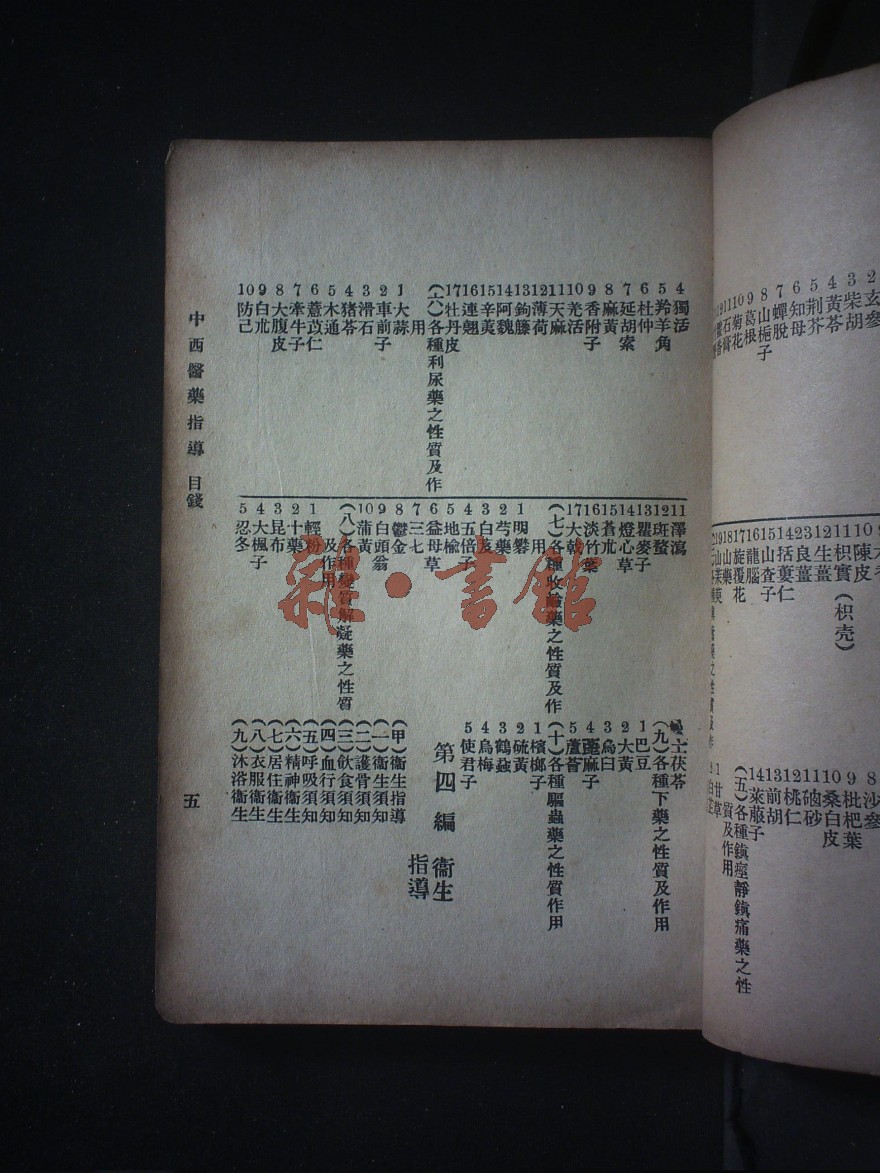 玄參
2
3 柴胡
4 黃芩
5 荆芥
6 知母
7 蟬脫
8 山梔子
9 葛根
10 菊花
11 石膏
10 陳皮
11 枳實（枳壳）
12 生薑
13 良薑
14 括蔞仁
15 山查子
16 龍腦
17 旋覆花
18 山藥
沙參
8 枇杷葉
9 桑白皮
10
11 硇砂
12 桃仁
13 前胡
14 萊菔子
（五）各種鎮痙靜鎮痛藥之性
質及作用
1 甘草
4 獨活
5 羚羊角
6 杜仲
7 延胡索
8 麻黃
9 香附子
10 羌活
11 天麻
12 薄荷
13 鉤籐
14 阿魏
15 辛荑
16 連翹
17 牡丹皮
（六）各種利尿藥之性質及作
用
1 大蒜
2 車前子
3 滑石
4 猪苓
5 木通
6 薏苡仁
7 牽牛子
8 大腹皮
9 白朮
10 防己
11 澤瀉
12 斑蝥
13 瞿麥子
14 燈心草
15 蒼朮
16 淡竹葉
17 大戟
（七）各種收斂藥之性質及作
用
1 明礬
2 芍藥
3 白芨
4 五倍子
5 地楡
6 益母草
7 三七
8 鬱金
9 白頭翁
10 蒲黃
（八）各種變質解凝藥之性質
及作用
1 輕粉
2 十藥
3 昆布
4 大楓子
5 忍冬
土茯苓
（九）各種下藥之性質及作用
1 巴豆
2 大黃
3 烏臼
4 蓖麻子
5 蘆薈
（十）各種驅蟲藥之性質作用
1 檳榔子
2 硫黃
3 鶴蝨
4 烏梅
5 使君子
第四編 衞生
指導
（甲）衞生指導
（一）衞生須知
（二）護骨須知
（三）飲食須知
（四）血行須知
（五）呼吸須知
（六）精神衞生
（七）居住衞生
（八）衣服衞生
（九）沐浴衞生
中西醫藥指導 目錢
五
雜·書館